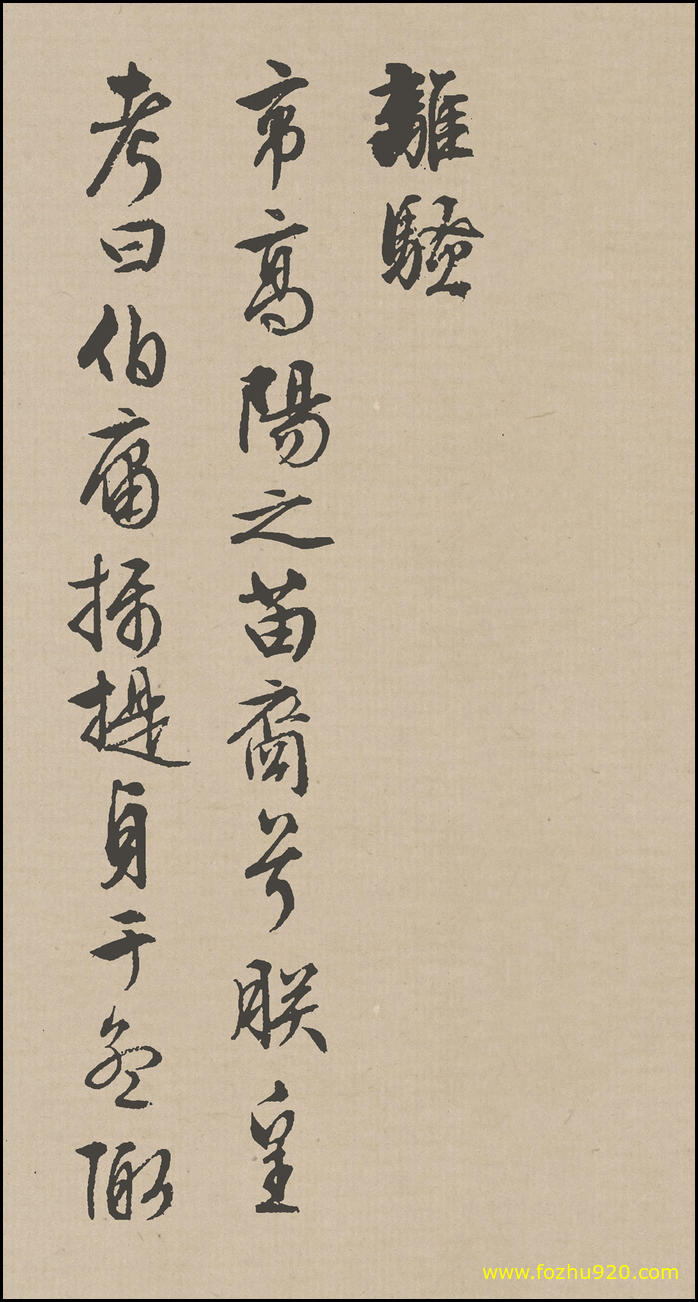 離騷
帝高陽之苗裔兮朕皇
考曰伯庸攝提貞于孟陬
www.fozhu920.com